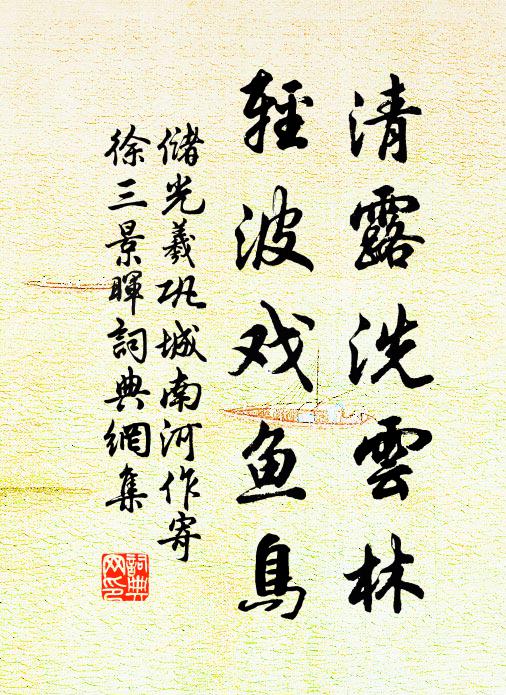 清露洗雲林
輕波戏鱼鳥
儲光羲巩城南河作寄
徐三景暉詞典網集
詞典网印